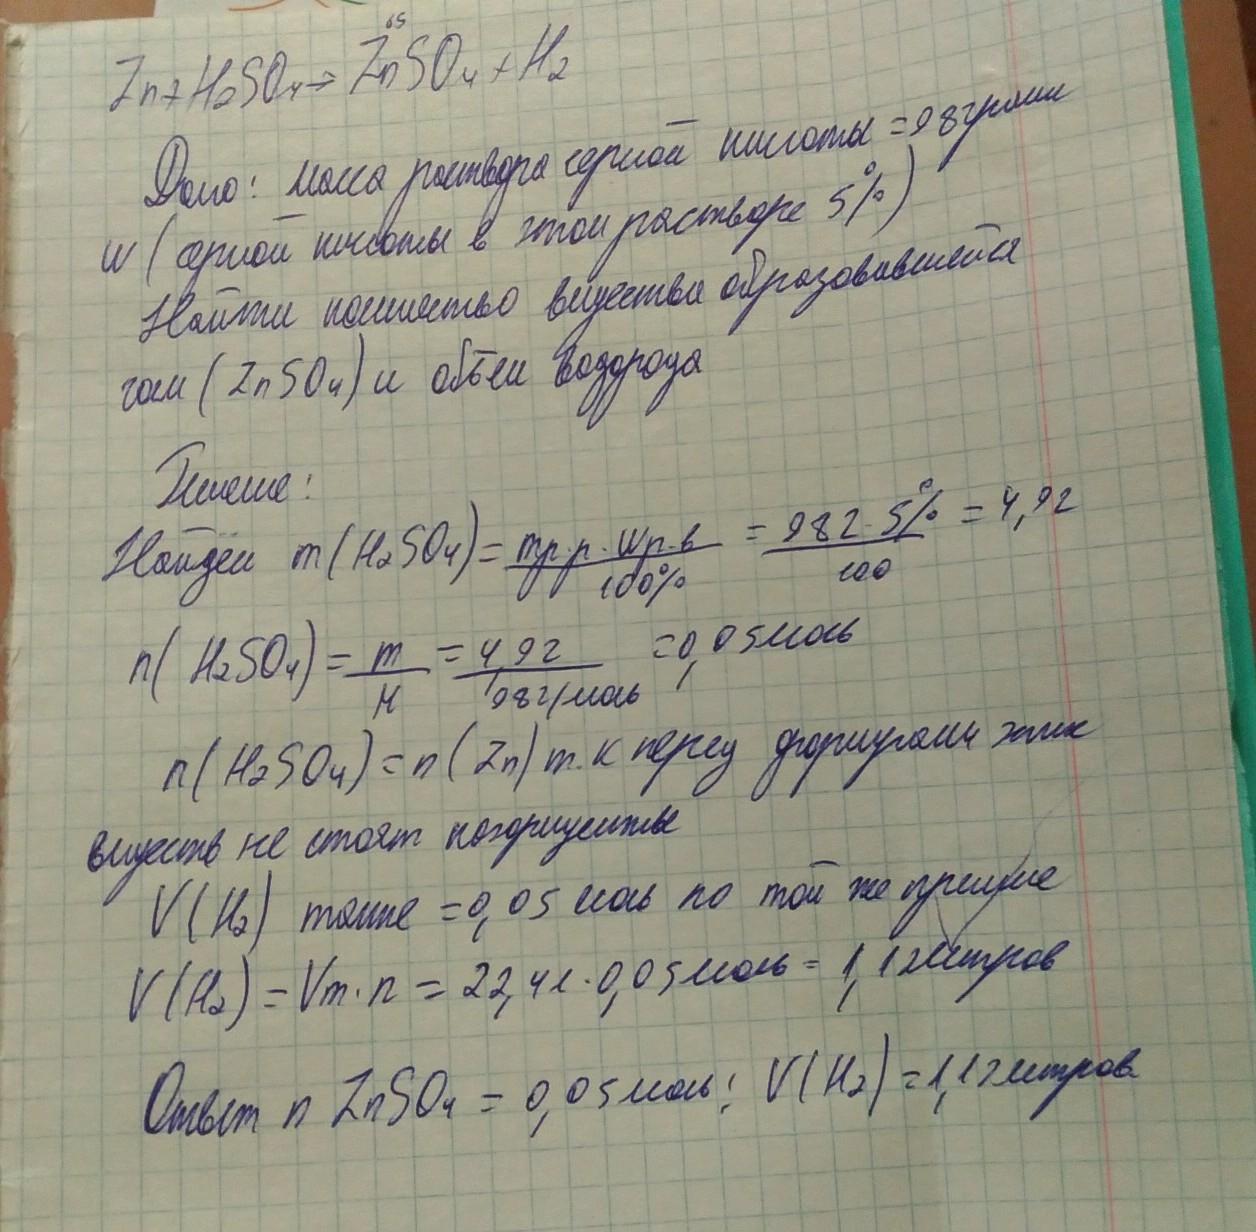 65
Zn+H2SO4→ZnSO4+H2
Дано: масса раствора серной кислоты =98грамм
w (серной кислоты в этом растворе 5%)
Найти количество вещества образовавшейся
соли (ZnSO4) и объем водорода
Решение:
Найдём m(H2SO4)= mр.р.·wр.в / 100% = 98г·5% / 100 = 4,9г
n(H2SO4)= m / M = 4,9г / 98г/моль =0,05моль
n(H2SO4)=n(Zn) т.к перед формулами этих
веществ не стоят коэффициенты
V(H2) также =0,05 моль по той же причине
V(H2)=Vm·n = 22,4л·0,05моль= 1,12литров
Ответ n ZnSO4 = 0,05моль; V(H2)=1,12литров